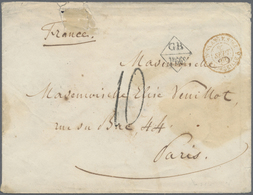 France.
GB
Mademoiselle
Mademoiselle Elise Veuillot
10
rue du Bac, 44
Paris.